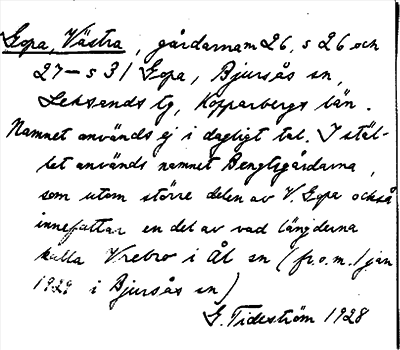 Gopa, Västra, gårdarnam 26, s 26 och
27 – s 31 Gopa, Bjursås sn,
Leksands tg, Kopparbergs län.
Namnet används ej i dagligt tal. I stäl-
let används namnet Bengtsgårdarna,
som utom större delen av V. Gopa också
innefattar en del av vad längderna
kalla Vrebro i Ål sn (fr.o.m. 1 jan
1929 i Bjursås sn)
G. Tideström 1928